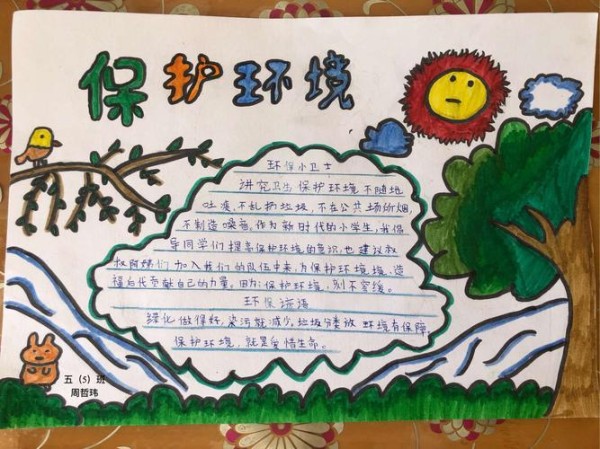 保护环境
环保小卫士
讲究卫生保护环境不随地
吐痰,不乱扔垃圾,不在公共场所烟,
不制造噪音,作为新时代的小学生,我倡
导同学们提高保护环境的意识,也建议叔
叔阿姨们加入我们的队伍中来,为保护环境境、造
福后代贡献自己的力量。因为:保护环境,刻不容缓。
环保谚语
绿化做得好,染污就减少。垃圾分类放 环境有保障,
保护环境,就是爱惜生命。
五(5)班
周哲玮